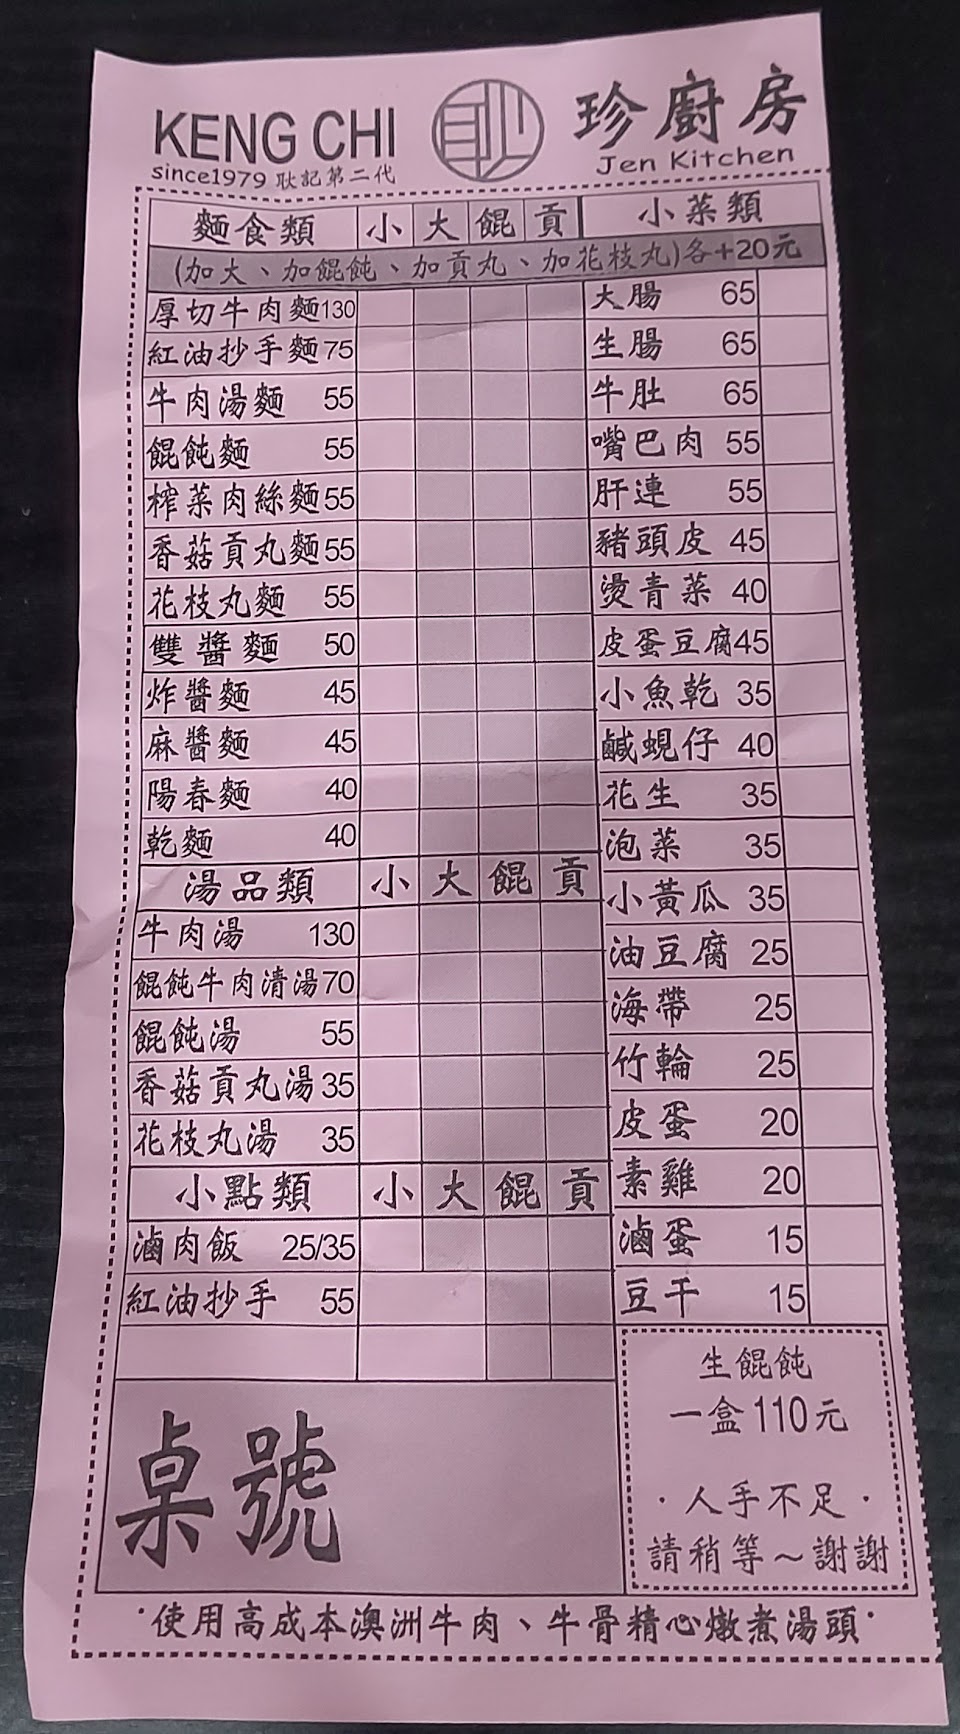 KENG CHI
since1979 耿記第二代
珍廚房
Jen Kitchen
麵食類 小 大 餛 貢
(加大、加餛飩、加貢丸、加花枝丸)各+20元
厚切牛肉麵130
紅油抄手麵75
牛肉湯麵 55
餛飩麵 55
榨菜肉絲麵55
香菇貢丸麵55
花枝丸麵 55
雙醬麵 50
炸醬麵 45
麻醬麵 45
陽春麵 40
乾麵 40
湯品類 小 大 餛 貢
牛肉湯 130
餛飩牛肉清湯70
餛飩湯 55
香菇貢丸湯35
花枝丸湯 35
小點類 小 大 餛 貢
滷肉飯 25/35
紅油抄手 55
桌號
小菜類
大腸 65
生腸 65
牛肚 65
嘴巴肉 55
肝連 55
豬頭皮 45
燙青菜 40
皮蛋豆腐45
小魚乾 35
鹹蜆仔 40
花生 35
泡菜 35
小黃瓜 35
油豆腐 25
海帶 25
竹輪 25
皮蛋 20
素雞 20
滷蛋 15
豆干 15
生餛飩
一盒110元
·人手不足·
請稍等~謝謝
·使用高成本澳洲牛肉、牛骨精心燉煮湯頭·